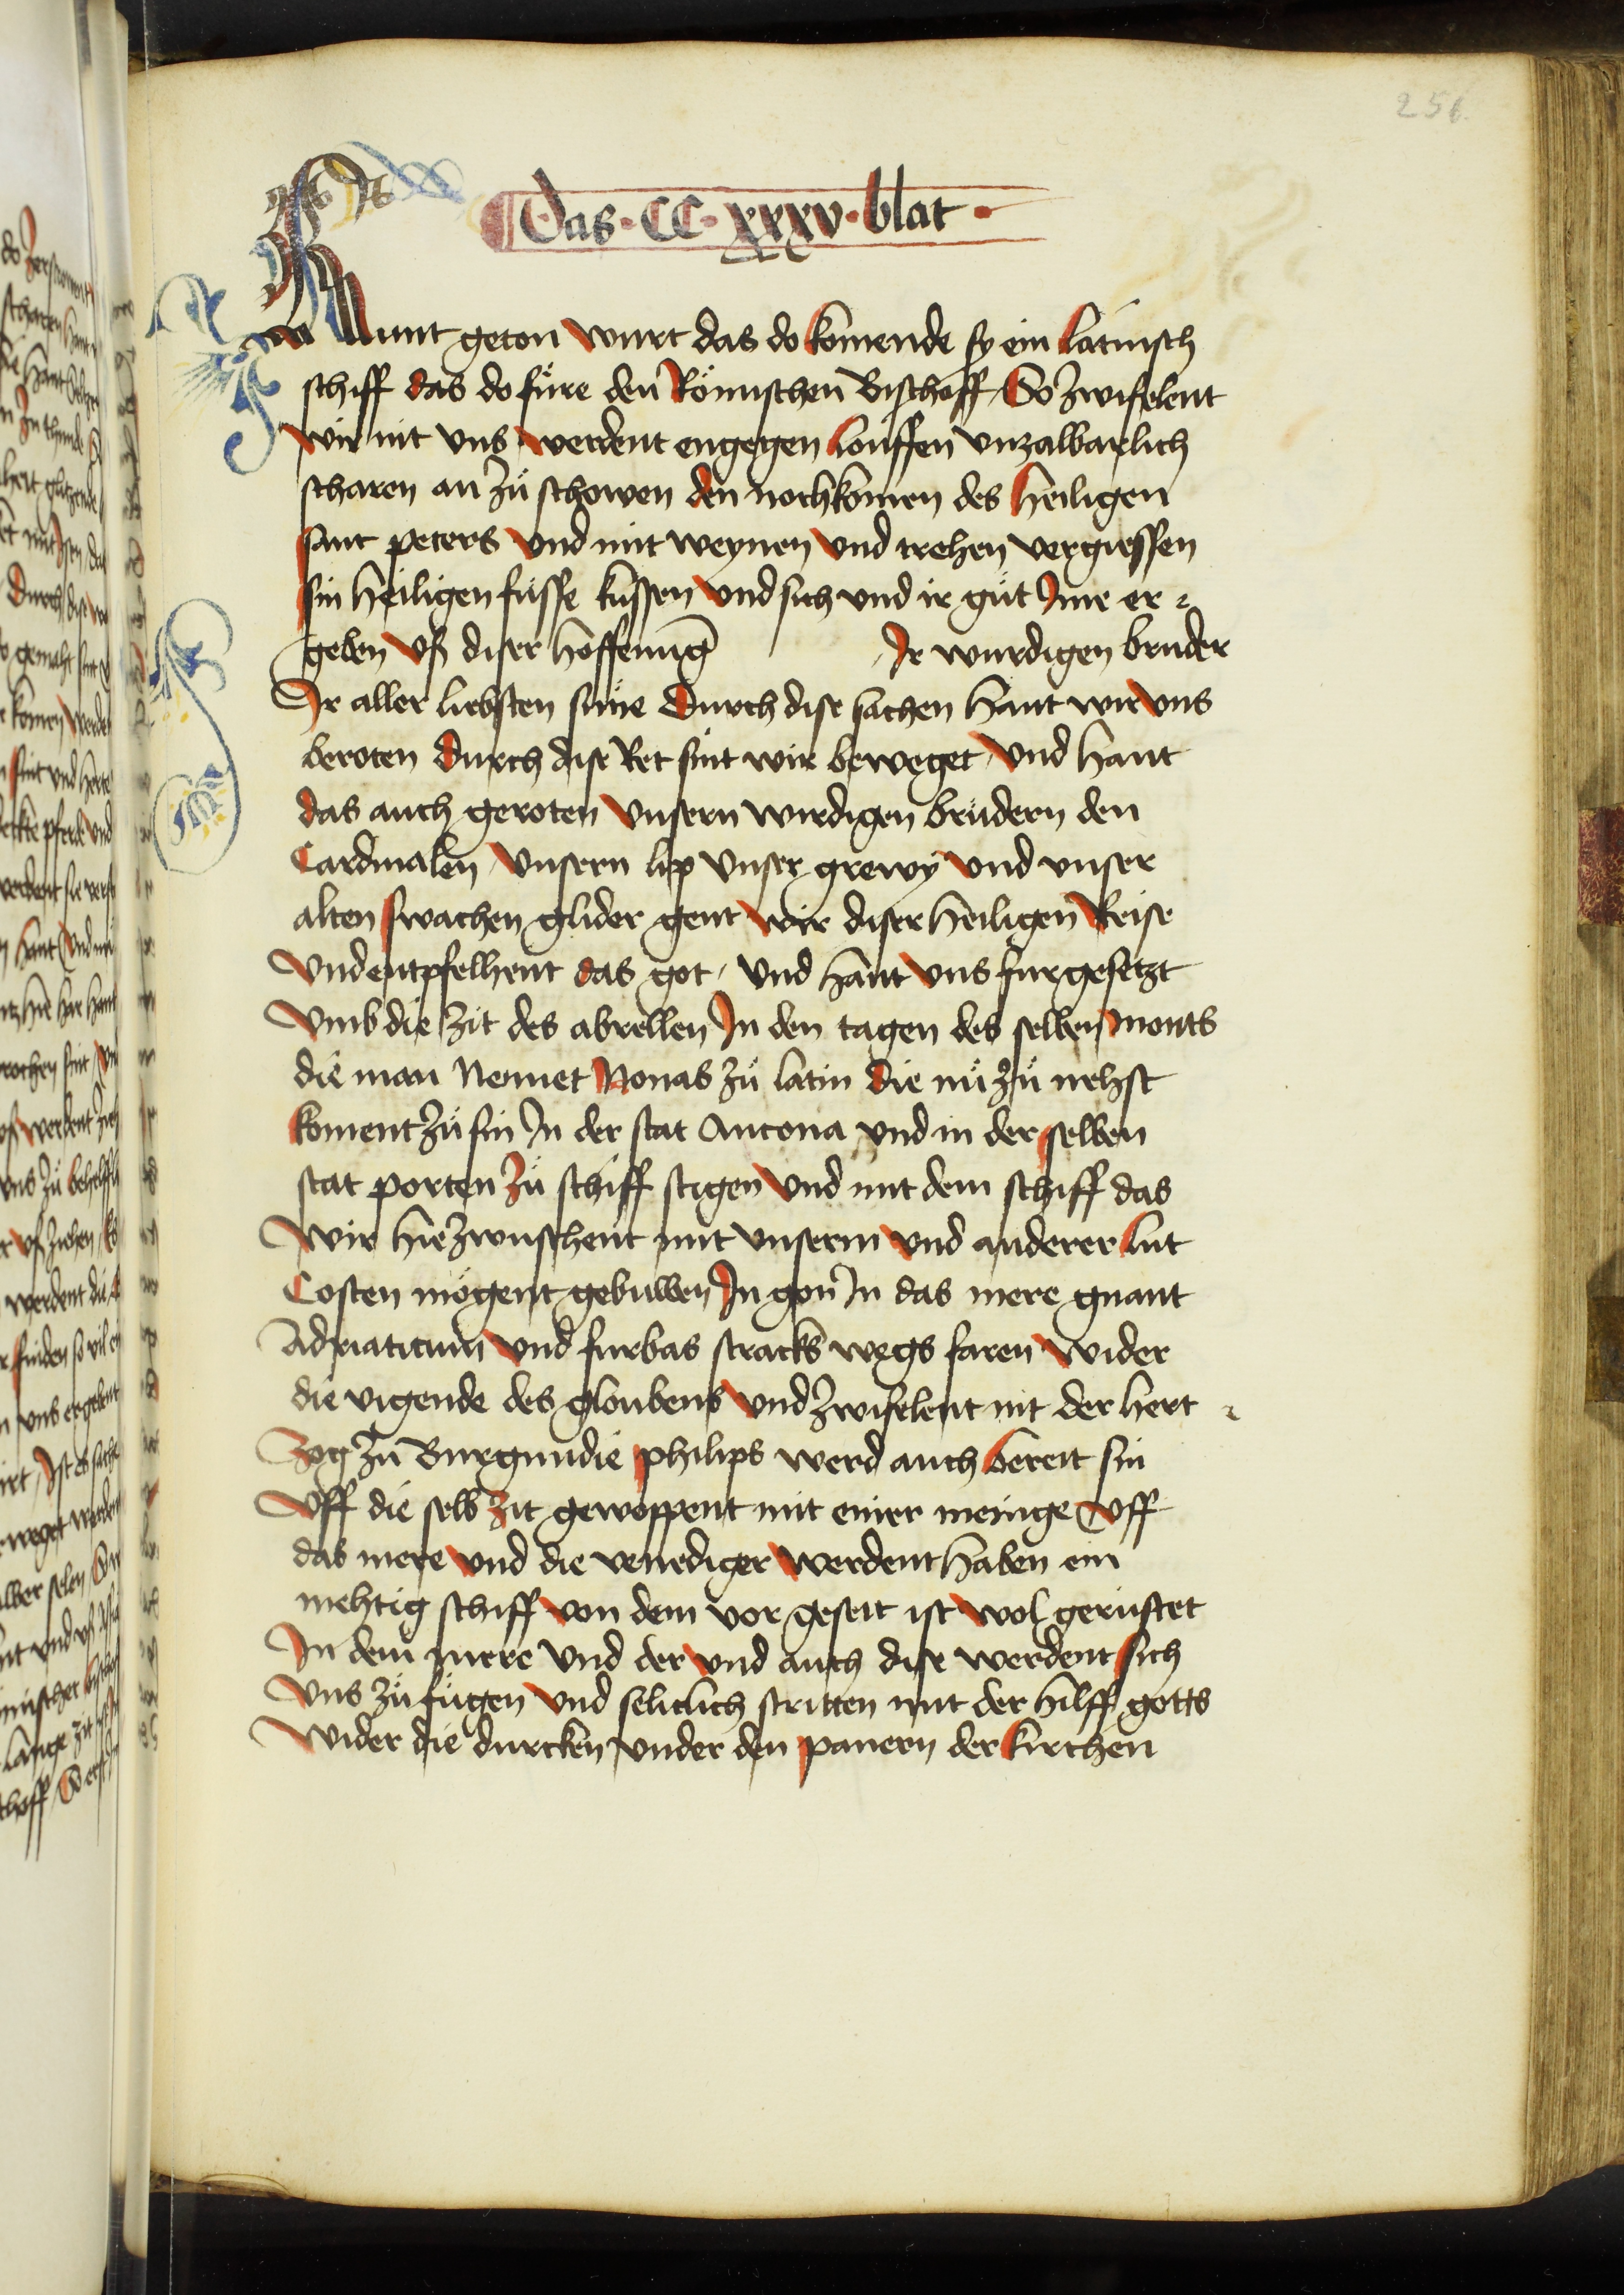 256
Das · CC · xxxv · blat ·
kunt geton wurt das do komende sy ein latinsch
schiff das do füre den Römischen Bischoff / So zwifelent
wir nit vns werdent engegen louffen vnzalbarlich
scharen an zů schowen den nochkomen des heiligen
sant peters vnd mit weynen vnd trehen vergiessen
sin heiligen füsse küssen vnd sich vnd ir gůt Jme er¬
geben vß diser hoffenūg Jr wurdigen bruder
Jr aller liebsten süne Durch dise sachen hant wir vns
beroten Durch dise Ret sint wir beweget / vnd hant
das auch geroten vnsern wirdigen brüdern den
Cardinalen / vnsern lip vnser grewy vnd vnser
alten swachen glider gent wir diser heiligen Reise
vnd entpfelhent das got / vnd hant vns fur gesetzt
vmb die zit des abrellen Jn den tagen des selben monts
die man Nemet Nonas zů latin die nů zů nehst
koment zů sin Jn der stat Ancona vnd in der selben
stat porten zů schiff stigen vnd mit dem schiff das
wir hiezwuschent mit vnserm vnd anderer lut
Costen mögent gebuwen Jn gon Jn das mere gnant
Adriaticum vnd furbas stracks wegs faren wider
die vigende des gloubens vnd zwifelent nit der hert¬
zog zů Burgundie philips werd auch bereit sin
vff die selb zit gewoppent mit einer meinge vff
das mere vnd die venediger werdent haben ein
mehtig schiff von dem vor geseit ist wol gerustet
Jn dem mere vnd der vnd auch dise werdent sich
vns zů fügen vnd seliclich stritten mit der hilff gotts
wider die durcken vnder den panern der kirchen